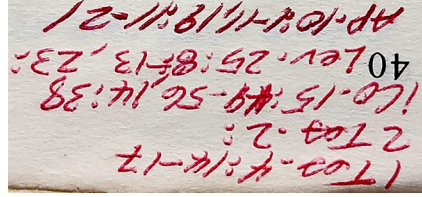 1 Tes-4:14-17
2 Tes-2:
1 Co-15:49-56, 14:38
40 Lev-25:8-13, 23:
AP-10:1-11, 19:11-21